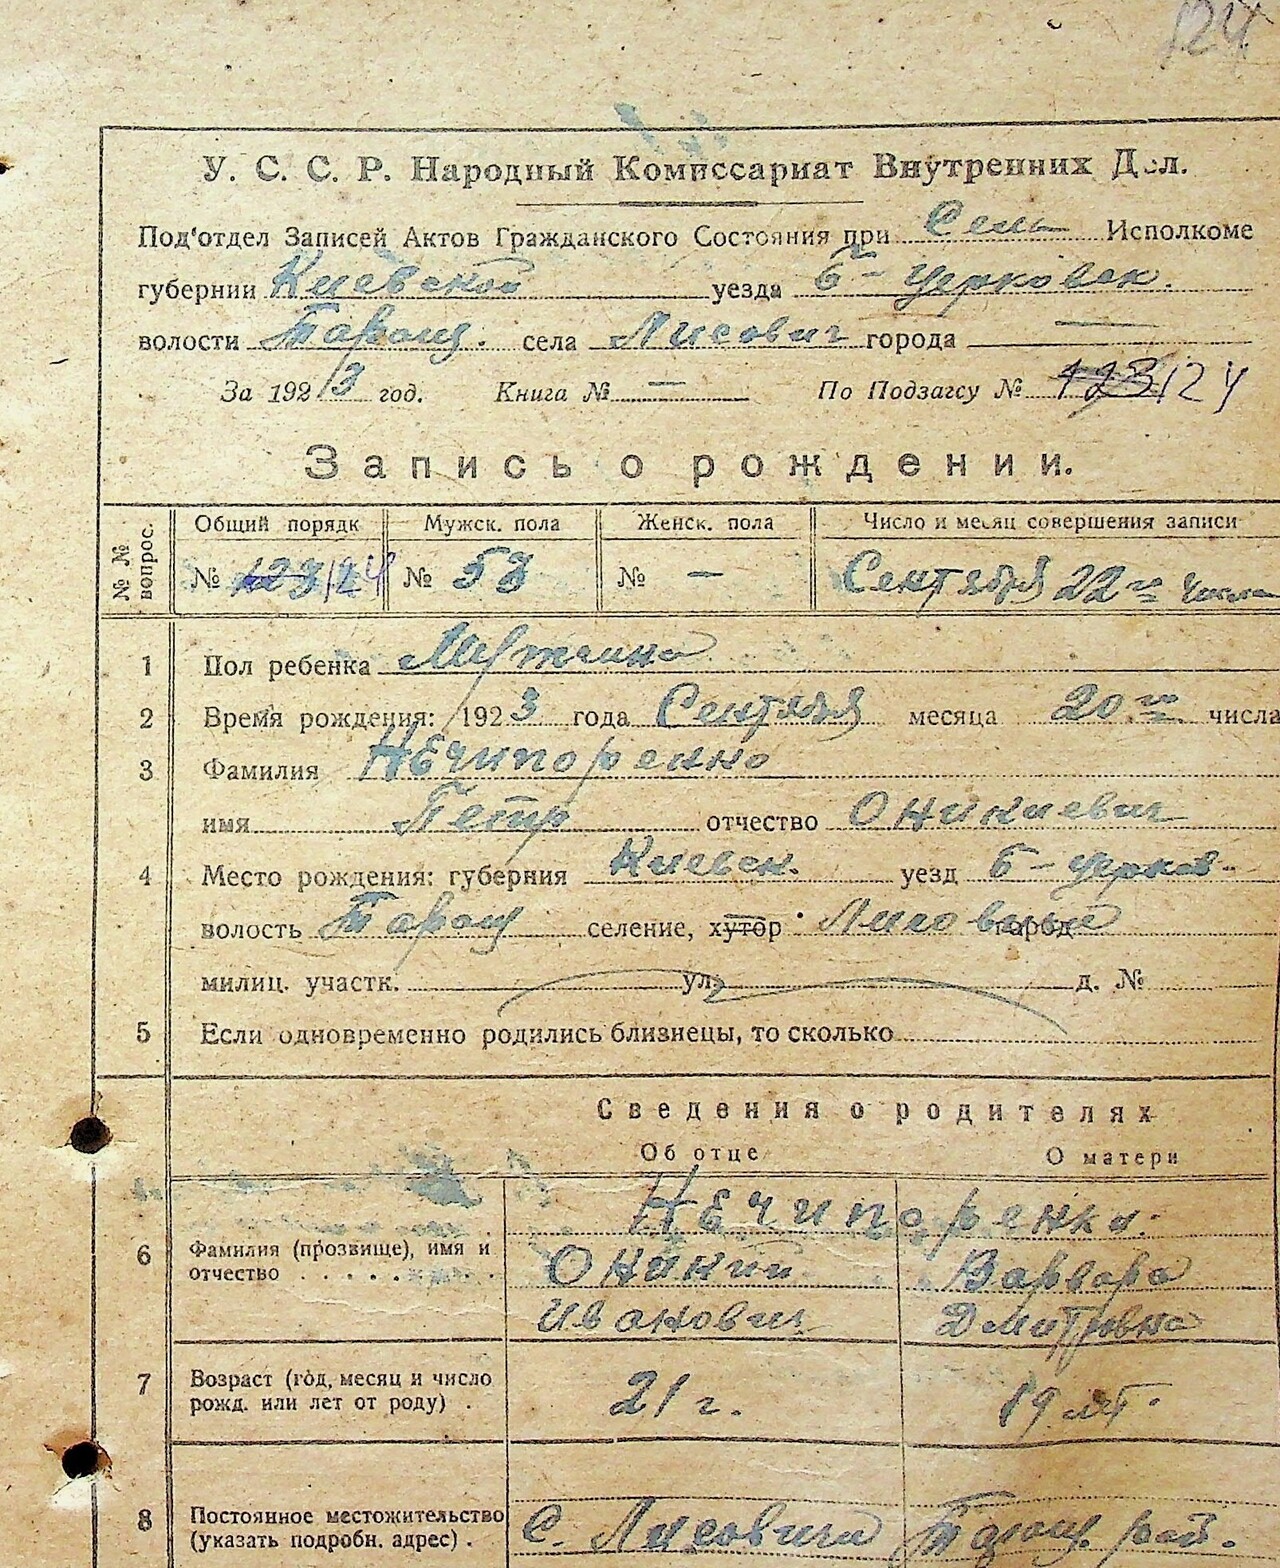 124
У. С. С. Р. Народный Комиссариат Внутренних Дел.
Под'отдел Записей Актов Гражданского Состояния при Сель Исполкоме
губернии Киевской уезда Б-Церковск.
волости Таращ. села Лисович города —
За 1923 год. Книга № — По Подзагсу № 123/124
Запись о рождении.
№№ вопрос. Общий порядк Мужск. пола Женск. пола Число и месяц совершения записи
№ 123/124 № 53 № — Сентября 22го числа
1 Пол ребенка Мужчина
2 Время рождения: 1923 года Сентября месяца 20го числа
3 Фамилия Нечипоренко
имя Петр отчество Оникиевич
4 Место рождения: губерния Киевск. уезд Б-Церков.
волость Таращ селение, хутор город
милиц. участк. ул. д. №
5 Если одновременно родились близнецы, то сколько
Сведения о родителях
Об отце О матери
Нечипоренки.
6 Фамилия (прозвище), имя и Оникий Варвара
отчество . . . . . . . Иванович Дмитровна
7 Возраст (год, месяц и число 21 г. 19 лет.
рожд. или лет от роду) .
8 Постоянное местожительство с. Лисовичи Таращ. рай.
(указать подробн. адрес) .